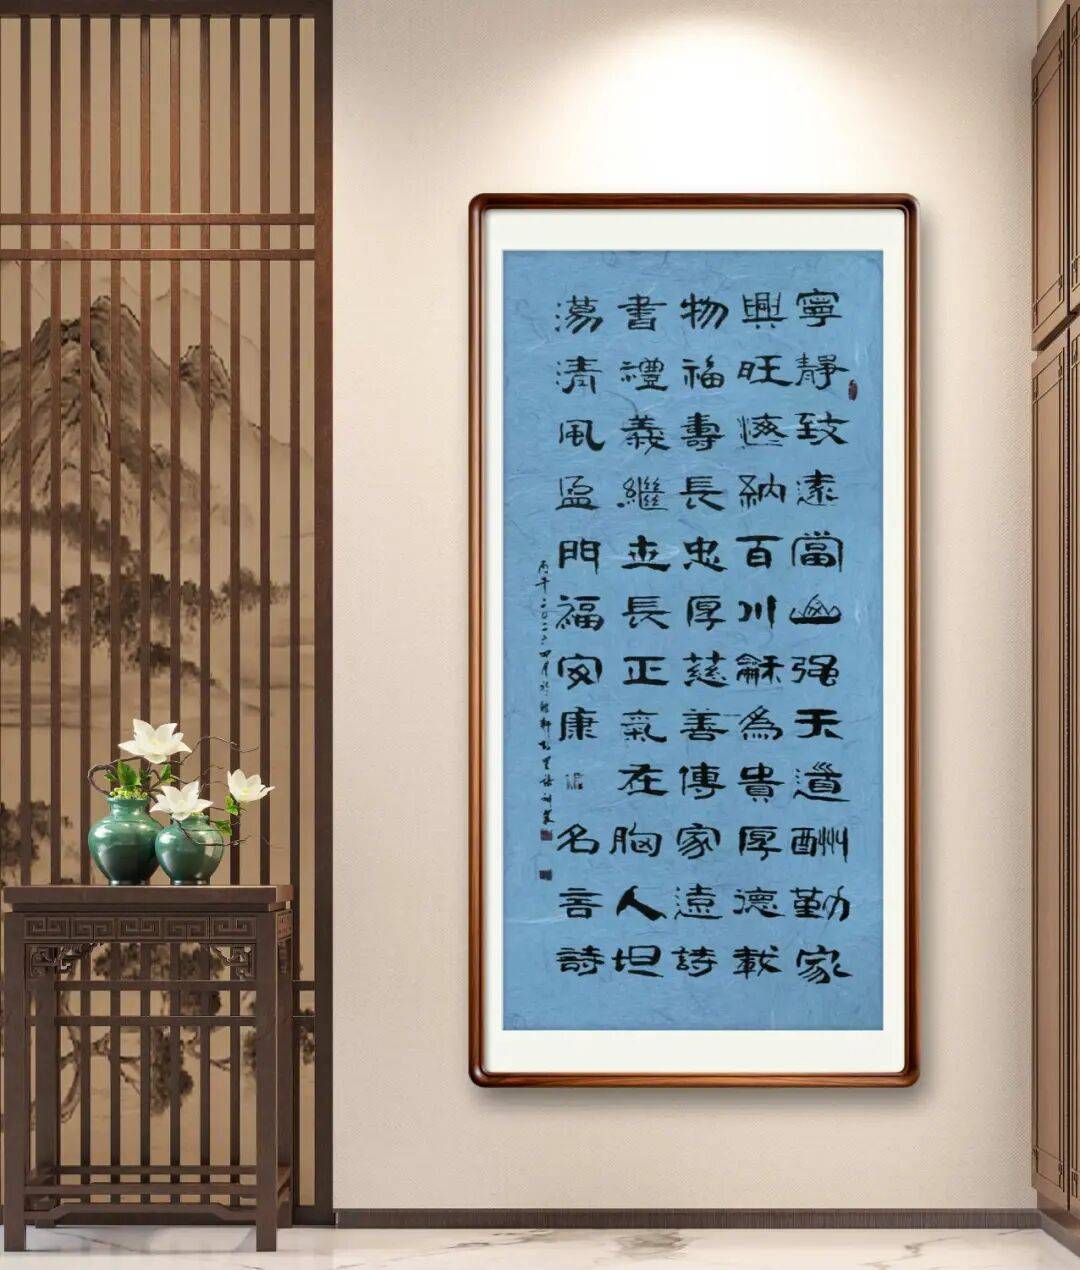 寧靜致遠當强天道酬勤家
興旺海納百川龢為貴厚德載
物福壽長忠厚慈善傳家遠詩
書禮義繼世長正氣在胸人坦
蕩清風盈門福安康
名言詩
丙午二〇二六四月於軒